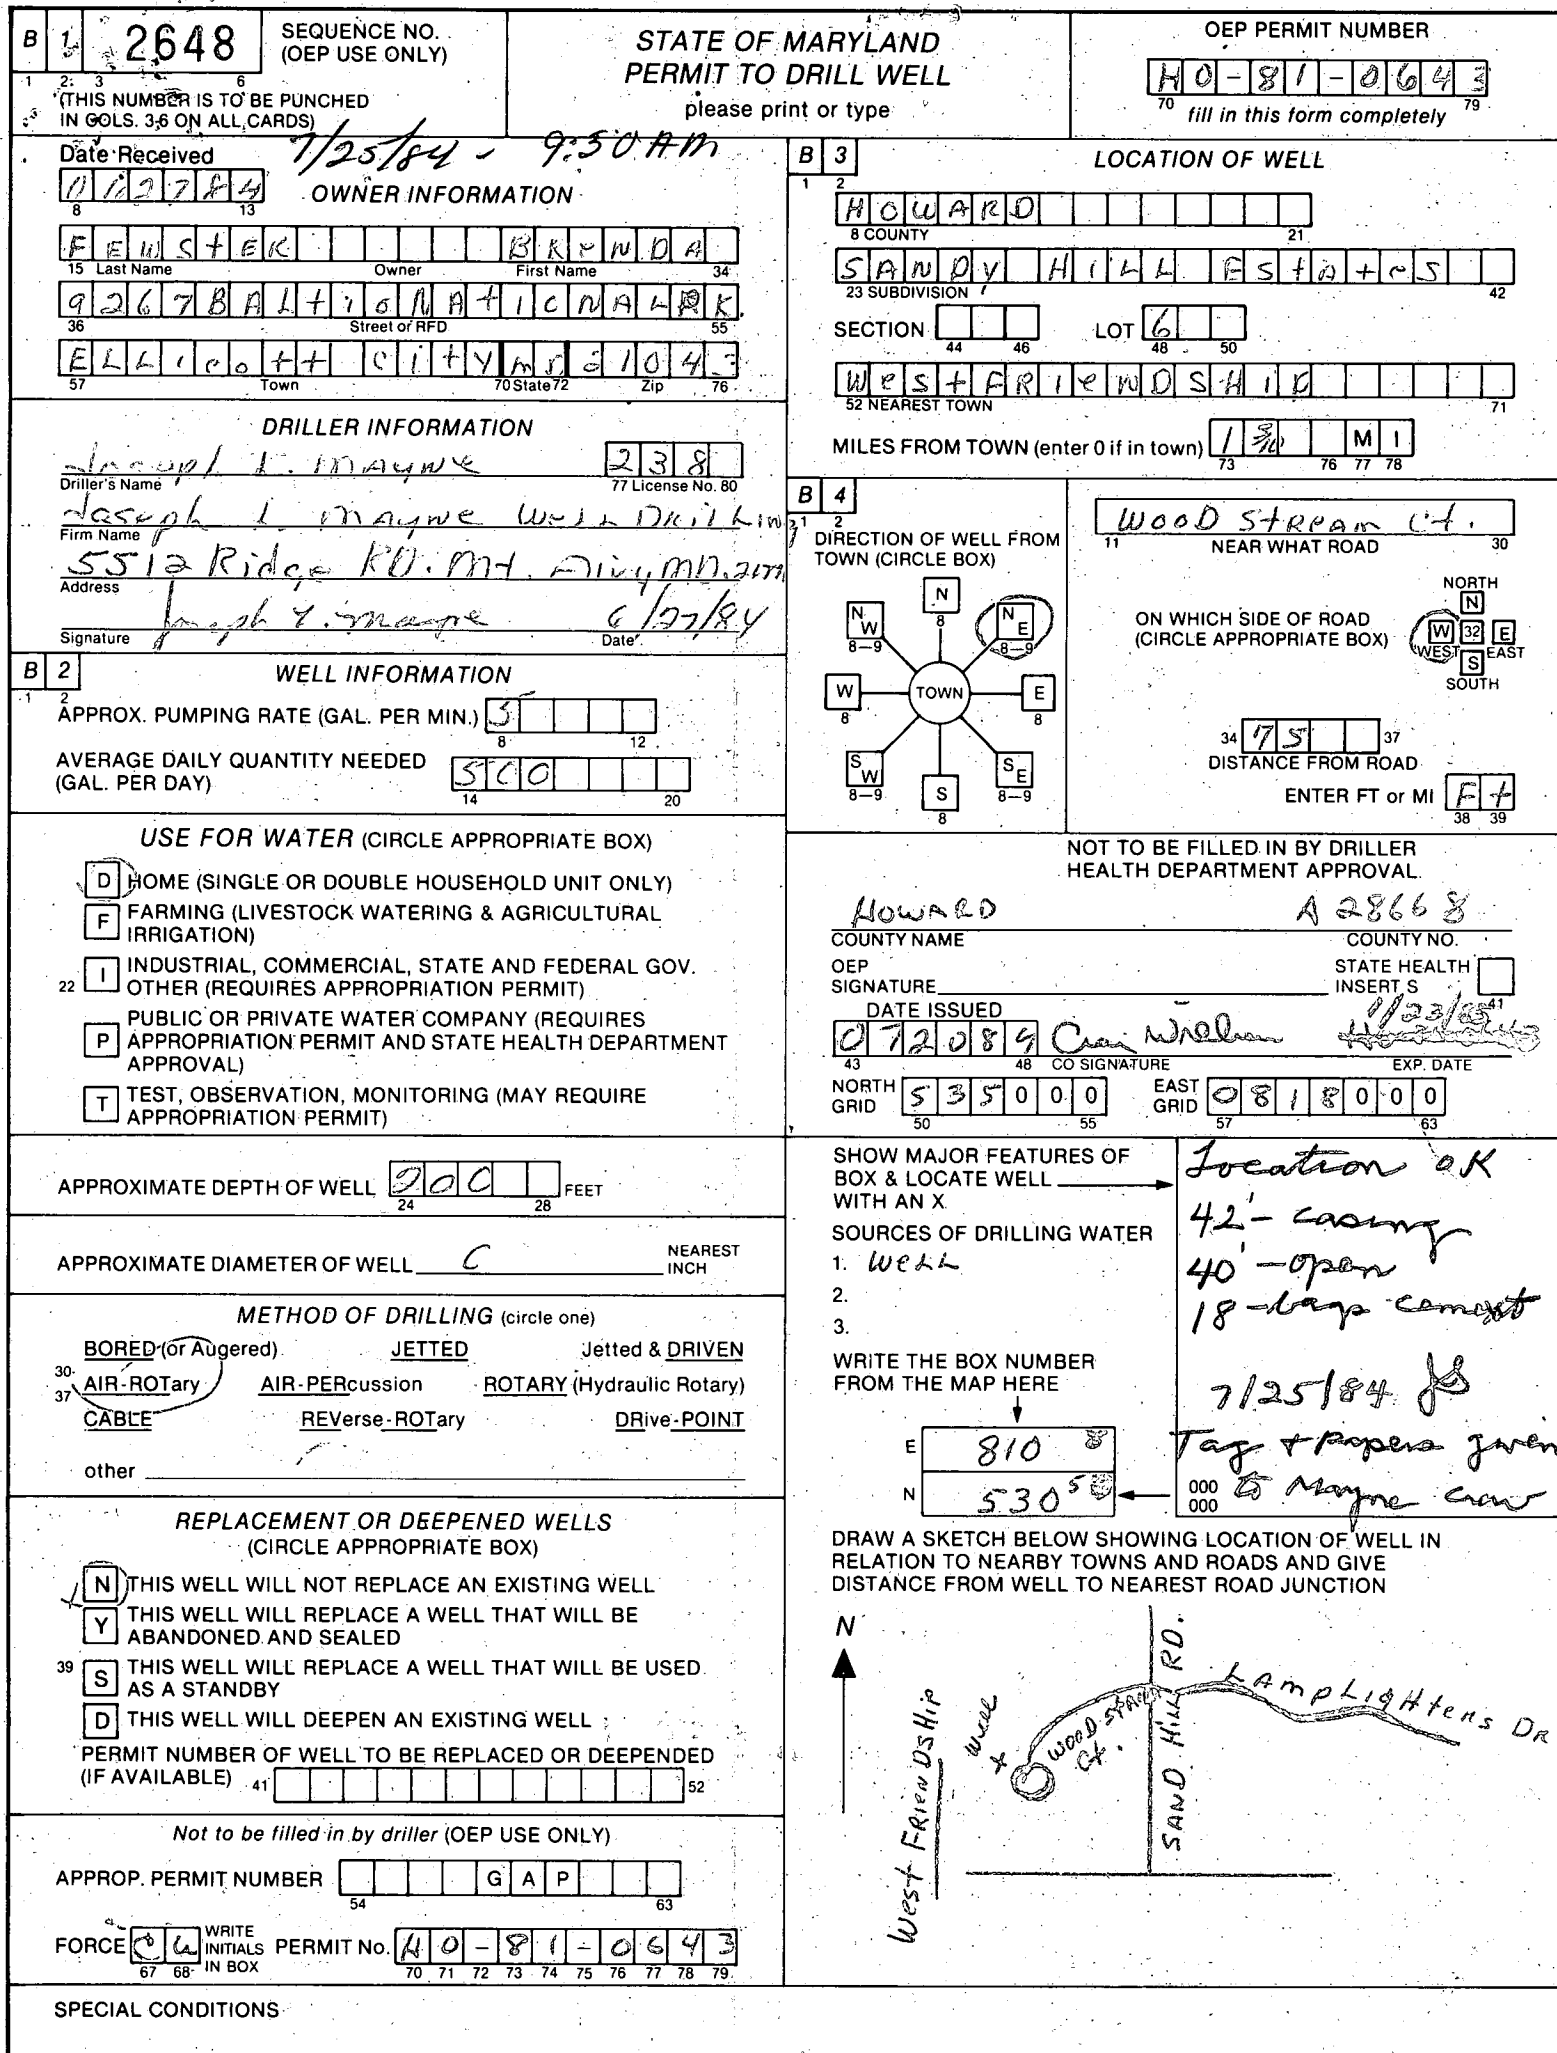 B 1 2648 SEQUENCE NO. (OEP USE ONLY)
1 2 3 6
(THIS NUMBER IS TO BE PUNCHED
IN COLS. 3-6 ON ALL CARDS)
STATE OF MARYLAND
PERMIT TO DRILL WELL
please print or type
OEP PERMIT NUMBER
HO-81-0643
70 79
fill in this form completely
Date Received 7/25/84 - 9:50 AM
8 13
OWNER INFORMATION
BRENDA
15 Last Name Owner First Name 34
9267 BALtio NAtIONAL PK.
36 Street or RFD 55
ELLicott City MD 21043
57 Town 70 State 72 Zip 76
DRILLER INFORMATION
Joseph L. MAYNE 238
Driller's Name 77 License No. 80
Joseph L. Mayne Well Drilling
Firm Name
5512 Ridge RD. Mt. Airy MD.
Address
Joseph L. Mayne 6/27/84
Signature Date
B 2 WELL INFORMATION
1 2
APPROX. PUMPING RATE (GAL. PER MIN.) 5
8 12
AVERAGE DAILY QUANTITY NEEDED
(GAL. PER DAY) 500
14 20
USE FOR WATER (CIRCLE APPROPRIATE BOX)
D HOME (SINGLE OR DOUBLE HOUSEHOLD UNIT ONLY)
F FARMING (LIVESTOCK WATERING & AGRICULTURAL
IRRIGATION)
22 I INDUSTRIAL, COMMERCIAL, STATE AND FEDERAL GOV.
OTHER (REQUIRES APPROPRIATION PERMIT)
P PUBLIC OR PRIVATE WATER COMPANY (REQUIRES
APPROPRIATION PERMIT AND STATE HEALTH DEPARTMENT
APPROVAL)
T TEST, OBSERVATION, MONITORING (MAY REQUIRE
APPROPRIATION PERMIT)
APPROXIMATE DEPTH OF WELL 200 FEET
24 28
APPROXIMATE DIAMETER OF WELL NEAREST
INCH
METHOD OF DRILLING (circle one)
BORED (or Augered) JETTED Jetted & DRIVEN
30 AIR-ROTary AIR-PERcussion ROTARY (Hydraulic Rotary)
37 CABLE REVerse-ROTary DRive-POINT
other
REPLACEMENT OR DEEPENED WELLS
(CIRCLE APPROPRIATE BOX)
N THIS WELL WILL NOT REPLACE AN EXISTING WELL
Y THIS WELL WILL REPLACE A WELL THAT WILL BE
ABANDONED AND SEALED
39 S THIS WELL WILL REPLACE A WELL THAT WILL BE USED
AS A STANDBY
D THIS WELL WILL DEEPEN AN EXISTING WELL
PERMIT NUMBER OF WELL TO BE REPLACED OR DEEPENDED
(IF AVAILABLE) 41 52
Not to be filled in by driller (OEP USE ONLY)
APPROP. PERMIT NUMBER G A P
54 63
FORCE CW WRITE INITIALS IN BOX PERMIT No. HO-81-0643
67 68 70 71 72 73 74 75 76 77 78 79
SPECIAL CONDITIONS
B 3 LOCATION OF WELL
1 2
HOWARD
8 COUNTY 21
SANDY HILL EStAteS
23 SUBDIVISION 42
SECTION LOT 6
44 46 48 50
WeSt FRIeNDSHIP
52 NEAREST TOWN 71
MILES FROM TOWN (enter 0 if in town) 1 M I
73 76 77 78
B 4
1 2
DIRECTION OF WELL FROM
TOWN (CIRCLE BOX)
N 8
NW 8-9
NE 8-9
W 8
TOWN
E 8
SW 8-9
S 8
SE 8-9
WOOD StReam Ct.
11 NEAR WHAT ROAD 30
ON WHICH SIDE OF ROAD
(CIRCLE APPROPRIATE BOX)
NORTH
N
W 32 E
WEST EAST
S
SOUTH
34 75 37
DISTANCE FROM ROAD
ENTER FT or MI Ft
38 39
NOT TO BE FILLED IN BY DRILLER
HEALTH DEPARTMENT APPROVAL
HOWARD A 28668
COUNTY NAME COUNTY NO.
OEP
SIGNATURE STATE HEALTH
INSERT S
41
DATE ISSUED 1/23/85
072084
43 48 CO SIGNATURE EXP. DATE
NORTH
GRID 535000 EAST
GRID 0818000
50 55 57 63
SHOW MAJOR FEATURES OF
BOX & LOCATE WELL
WITH AN X
SOURCES OF DRILLING WATER
1. WeLL
2.
3.
WRITE THE BOX NUMBER
FROM THE MAP HERE
E 810 8
N 530 5
000
000
Location OK
42' - casing
40' - open
18 - bags cement
7/25/84 JS
Tag + papers given
to Mayne crew
DRAW A SKETCH BELOW SHOWING LOCATION OF WELL IN
RELATION TO NEARBY TOWNS AND ROADS AND GIVE
DISTANCE FROM WELL TO NEAREST ROAD JUNCTION
N
West FRIENDSHIP
Well
WOOD Ct.
SAND HILL RD.
LAMPLIGHteRS DR